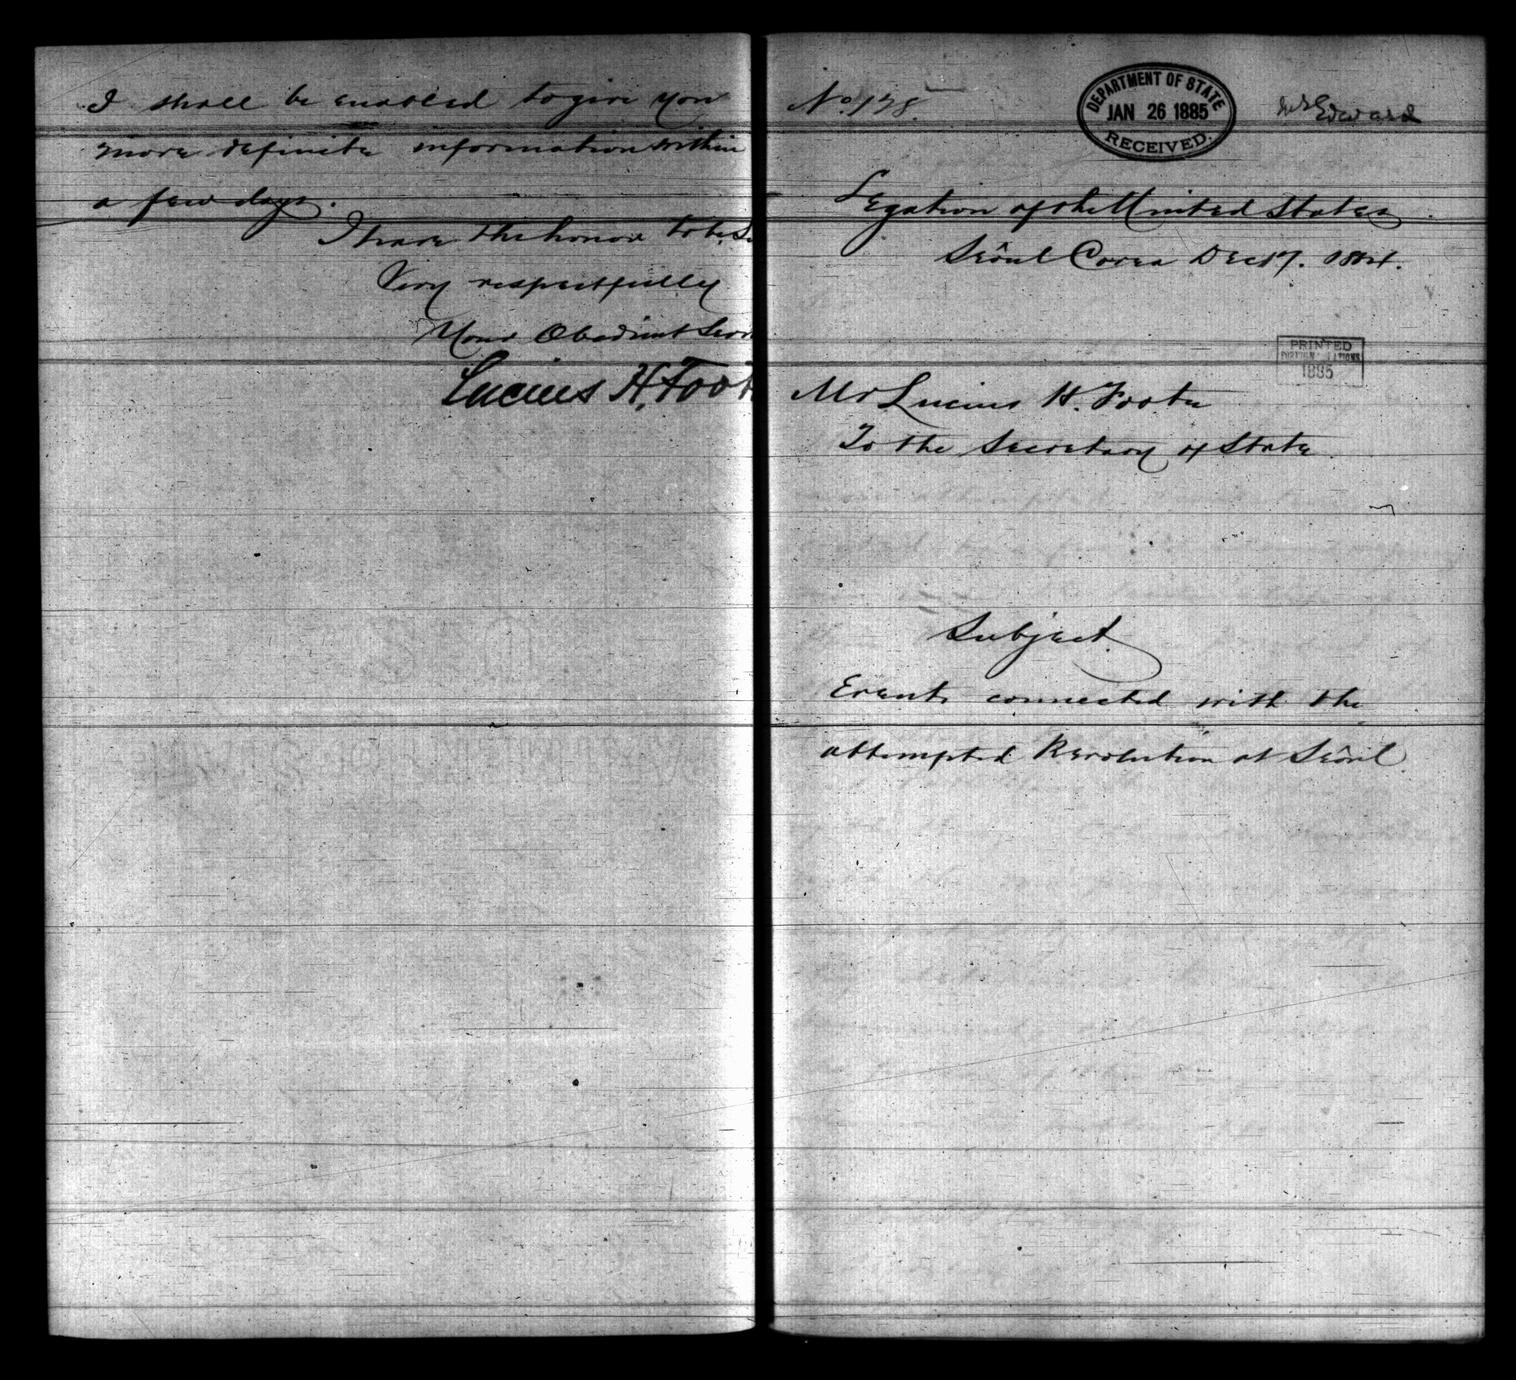 I shall be enabled to give you
more definite information within
a few days.
I have the honor to be S
Very respectfully
Your Obedient Serv
Lucius H. Foot
No. 128.
DEPARTMENT OF STATE
JAN 26 1885
RECEIVED.
Legation of the United States
Seôul Corea Dec 17. 1884.
PRINTED
1885
Mr Lucius H. Foote
To the Secretary of State
Subject.
Events connected with the
attempted Revolution at Seôul.